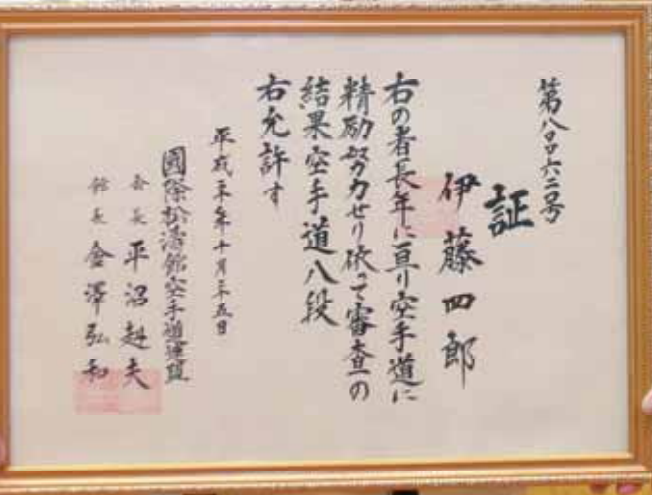 第八〇六二号
証
伊藤四郎
右の者長年に亘り空手道に
精励努力せり依って審査の
結果空手道八段
右允許す
平成二十年十月二十五日
國際松濤館空手道連盟
会長 平沼赳夫
館長 金澤弘和